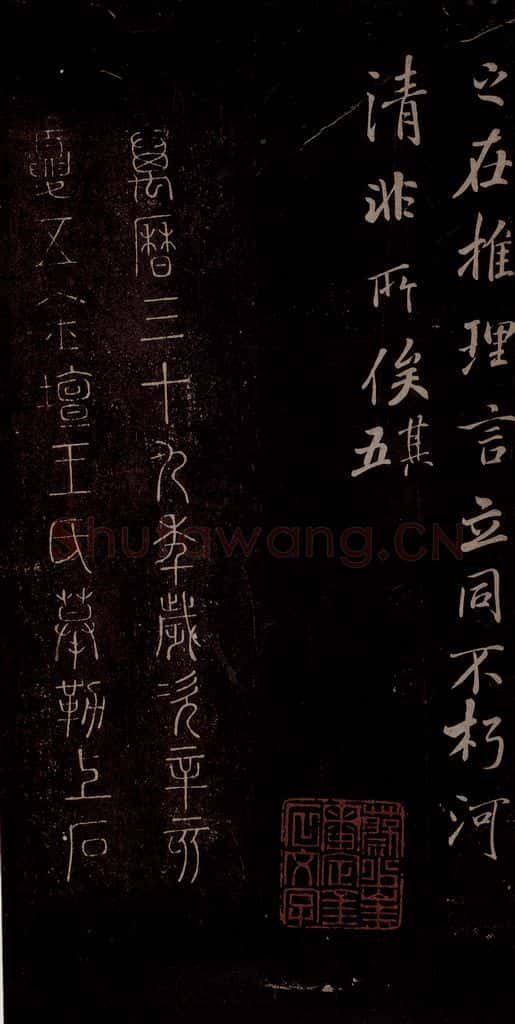 之在推理言立同不朽河
清非所俟
其五
萬曆三十九年歲次辛亥
夏五金壇王氏摹勒上石
Shufawang.CN